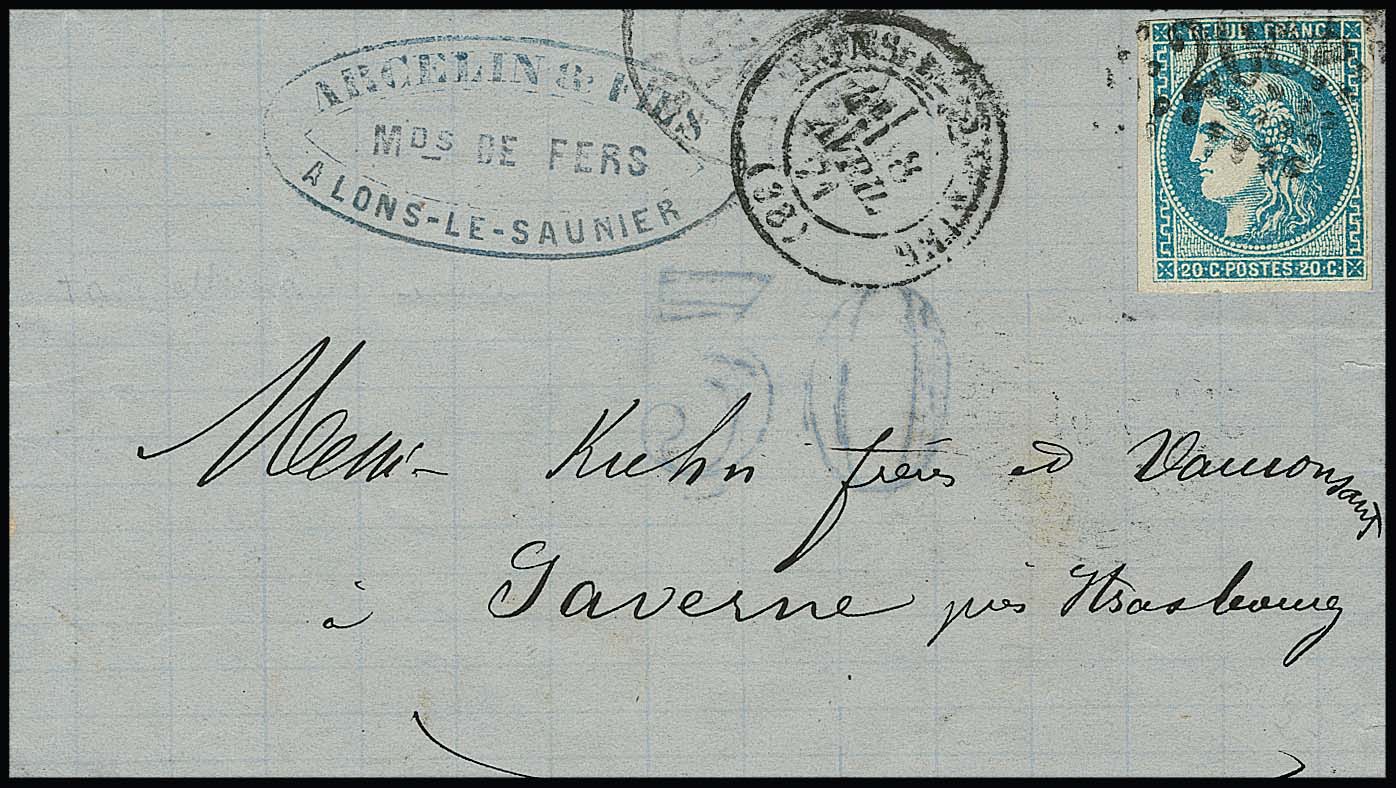 ARCELIN & FILS
Mds DE FERS
A LONS-LE-SAUNIER
LONS-LE-SAUNIER
18
AVRIL
71
REPUB. FRANC.
20·C·POSTES·20·C
50
Kuhn frères et
à Saverne près Strasbourg